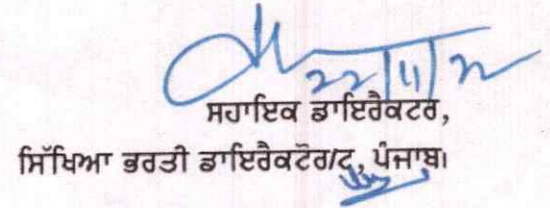 22/11/22
ਸਹਾਇਕ ਡਾਇਰੈਕਟਰ,
ਸਿੱਖਿਆ ਭਰਤੀ ਡਾਇਰੈਕਟੋਰੇਟ, ਪੰਜਾਬ।